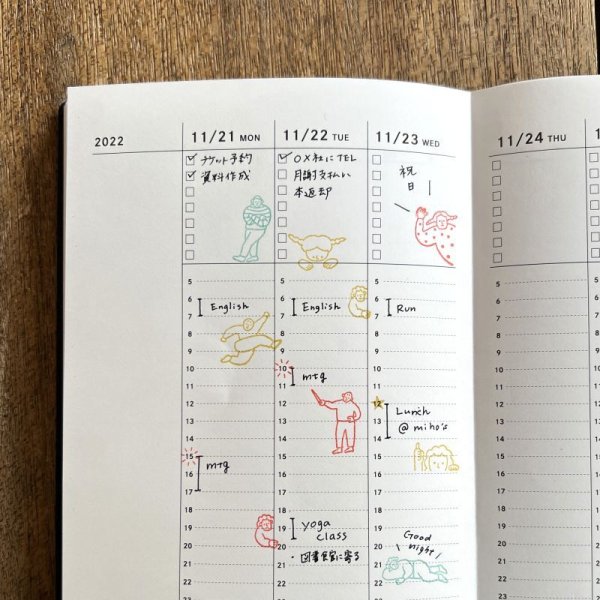 2022
11/21 MON
チケット予約
資料作成
5
6
7
English
8
9
10
11
12
13
14
15
16
mtg
17
18
19
20
21
22
23
11/22 TUE
OX社にTEL
月謝支払い
本返却
5
6
7
English
8
9
10
mtg
11
12
13
14
15
16
17
18
19
yoga
class
20
・図書館に寄る
21
22
23
11/23 WED
祝
日
5
6
7
Run
8
9
10
11
12
Lunch
13
@ miho's
14
15
16
17
18
19
20
Good
night
21
22
23
11/24 THU
5
6
7
8
9
10
11
12
13
14
15
16
17
18
19
20
21
22
23